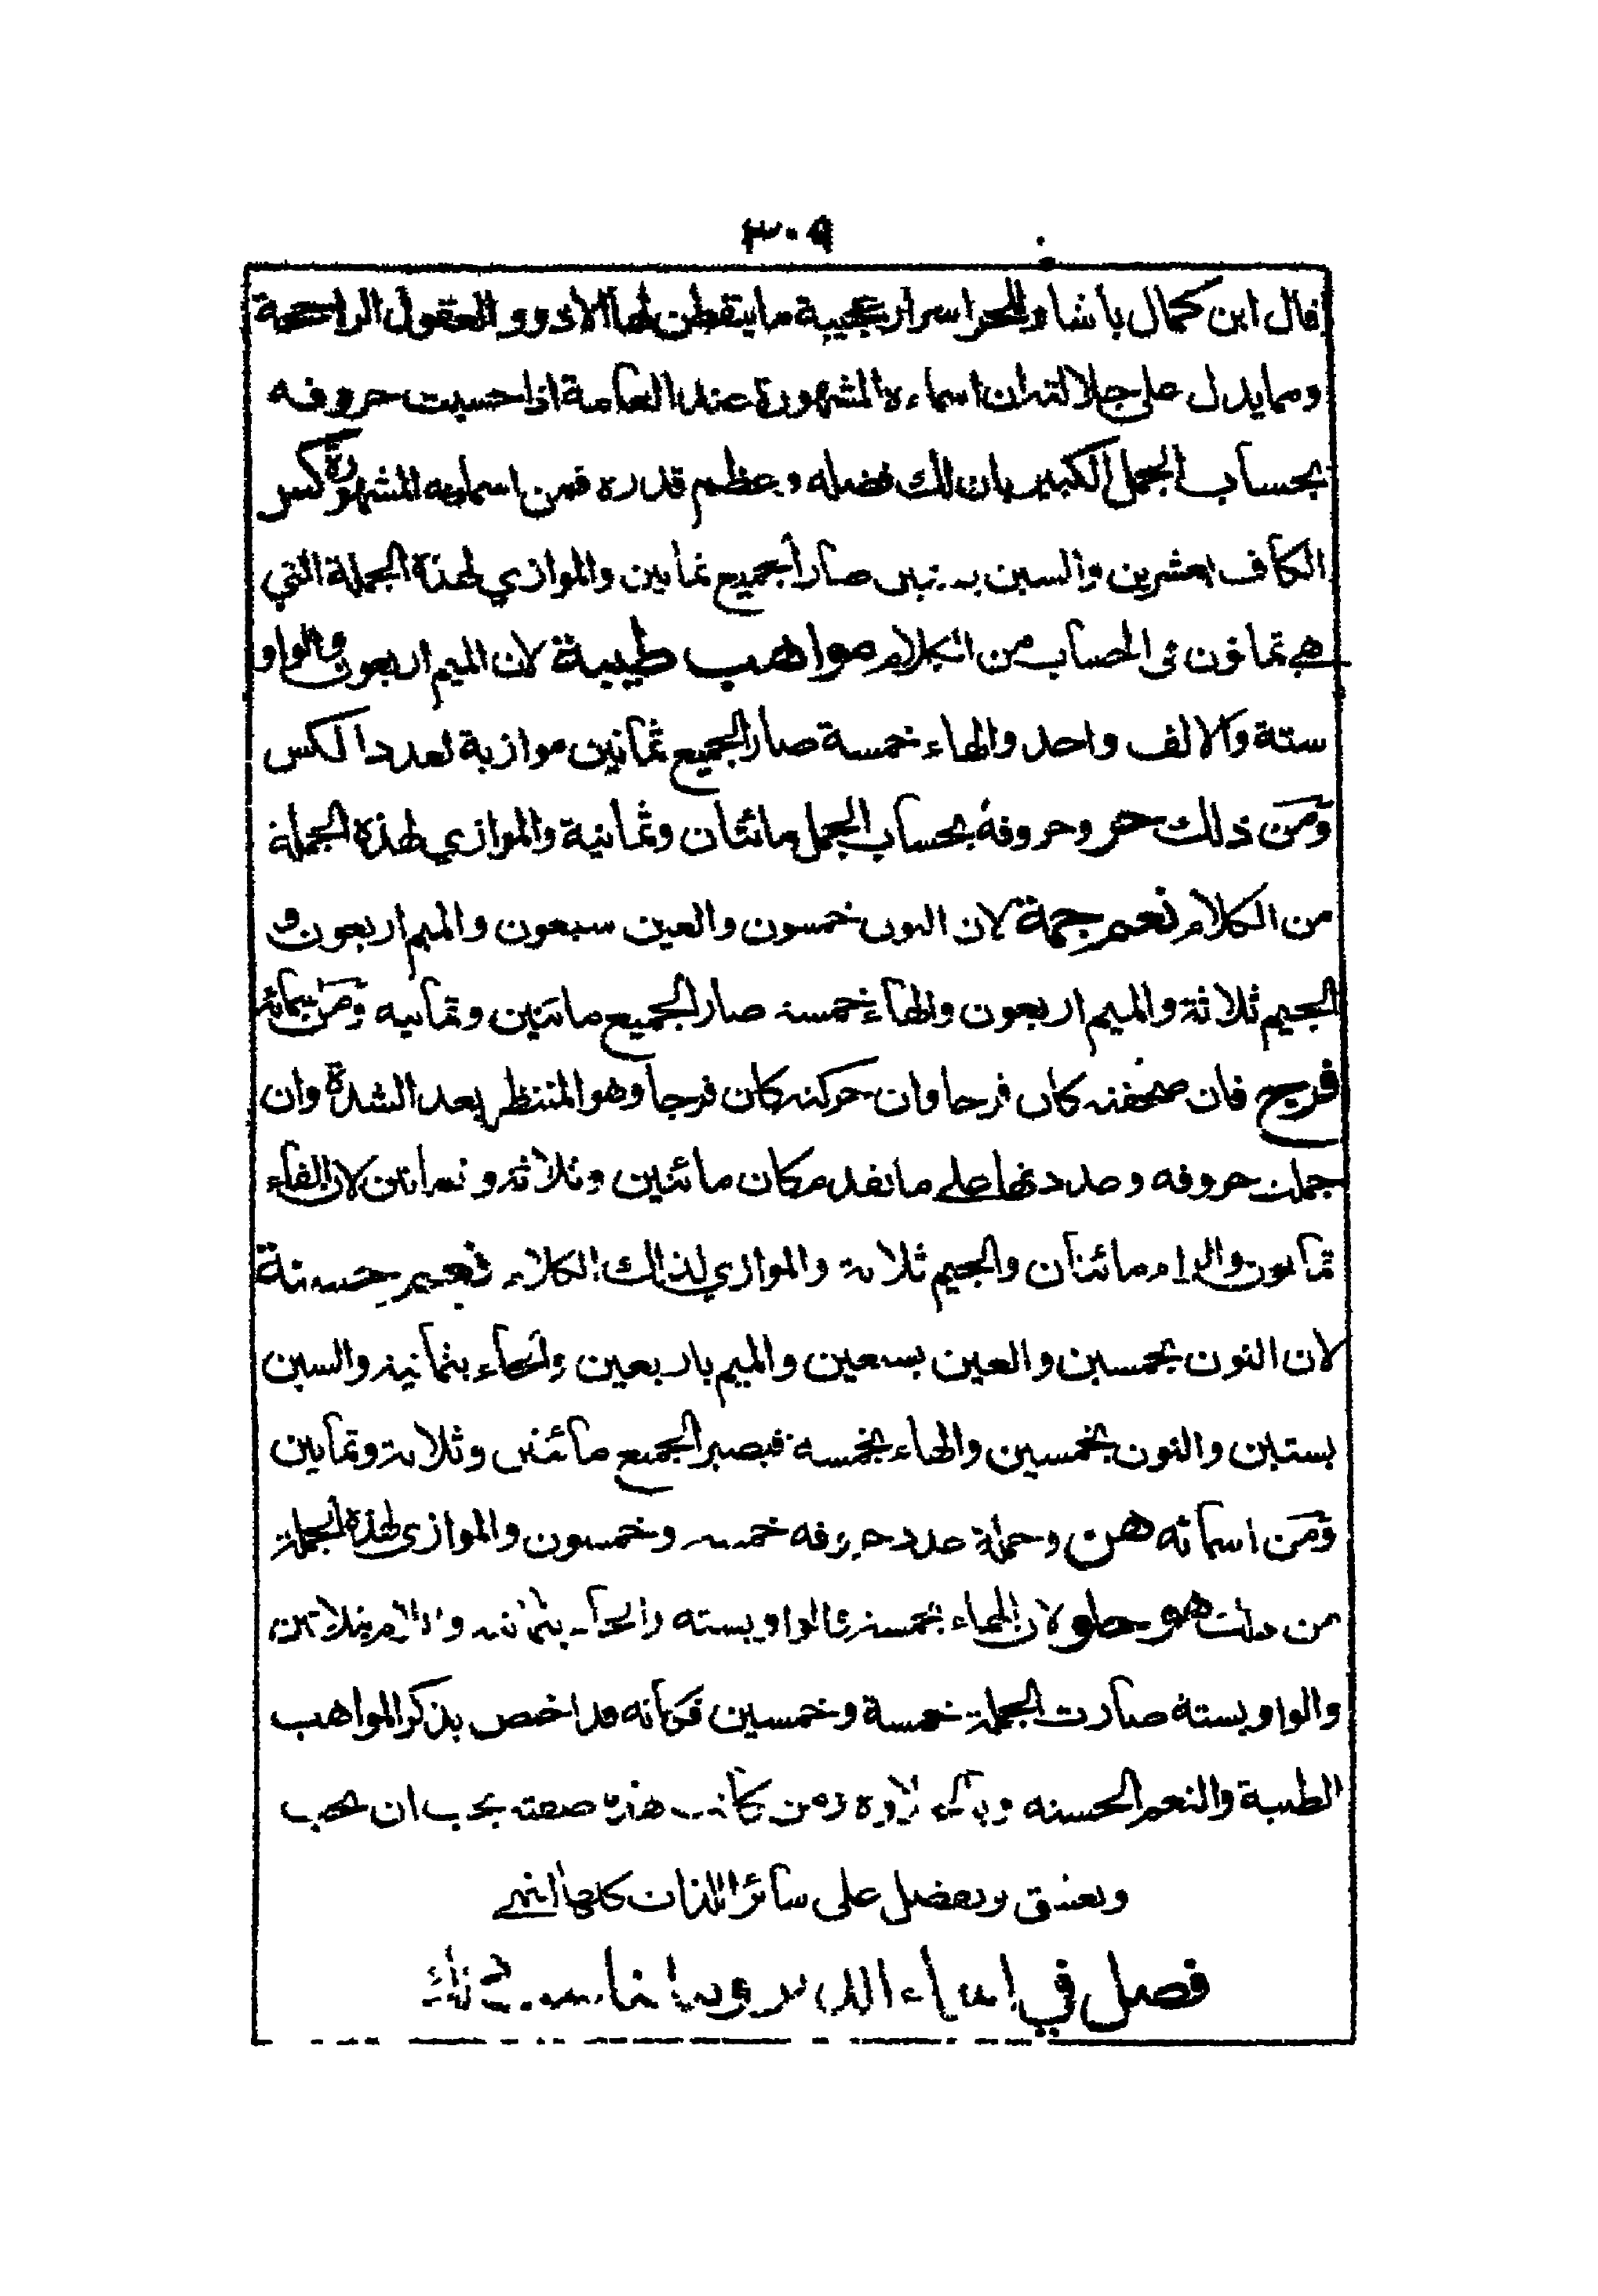 ٣٠٩
قال ابن كمال باشا وللحر اسرار عجيبة ما يتفطن لها الا ذوو العقول الراجحة
ومما يدل على جلالته ان اسماءه المشهورة عند العامة اذا حسبت حروفه
بحساب الجمل الكبير بان لك فضله وعظم قدره فمن اسمايه المشهورة كس
الكاف بعشرين والسين بستين صار الجميع ثمانين والموازي لهذه الجملة التي
هي ثمانون في الحساب من الكلام مواهب طيبة لان الميم اربعون والواو
ستة والالف واحد والهاء خمسة صار الجميع ثمانين موازية لعدد الكس
ومن ذلك حر وحروفه بحساب الجمل مائتان وثمانية والموازي لهذه الجملة
من الكلام نعم جمة لان النون خمسون والعين سبعون والميم اربعون و
الجيم ثلاثة والميم اربعون والهاء خمسة صار الجميع مائتين وثمانيه ومن
فرج فان صحفته كان فرحا وان حركته كان فرجا وهو المنتظر بعد الشدة وان
جملت حروفه وعددتها على ما تقدم كان مائتين وثلاثة وثمانين لان الفاء
ثمانون والراء مائتان والجيم ثلاثة والموازي لذلك الكلام نعم حسنة
لان النون بخمسين والعين بسبعين والميم باربعين والحاء بثمانية والسين
بستين والنون بخمسين والهاء بخمسه فيصير الجميع مائتين وثلاثة وثمانين
ومن اسمائه هن وجملة عدد حروفه خمسه وخمسون والموازي لهذه الجملة
من ذلك هو حلو لان الهاء بخمسة والواو بسته والحاء بثمانيه واللام بثلاثين
والواو بسته صارت الجملة خمسة وخمسين فكانه قد اختص بذكر المواهب
الطيبة والنعم الحسنه ومن كانت هذه صفته يجب ان يحب
ويعشق ويفضل على سائر اللذات كلها انتهى
فصل في اسماء